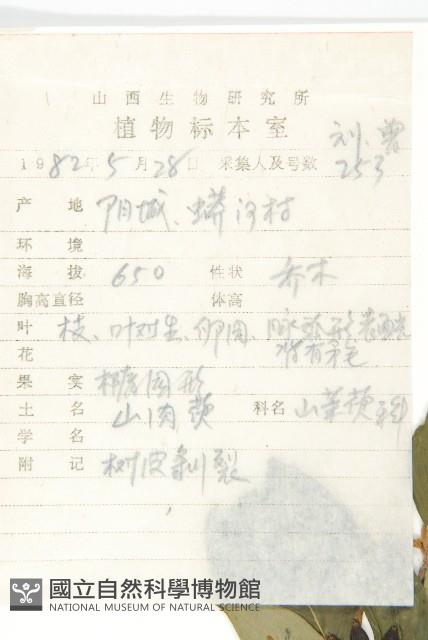 山西生物研究所
植物标本室
刘、曾
1982年5月28日 采集人及号数 253
产地 阳城、蟒河村
环境
海拔 650 性状 乔木
胸高直径 体高
叶 枝、叶对生、卵圆、脉弧形
花
果实 椭圆形
土名 山肉 科名 山茱萸科
学名
附记 树皮剥裂
國立自然科學博物館
NATIONAL MUSEUM OF NATURAL SCIENCE